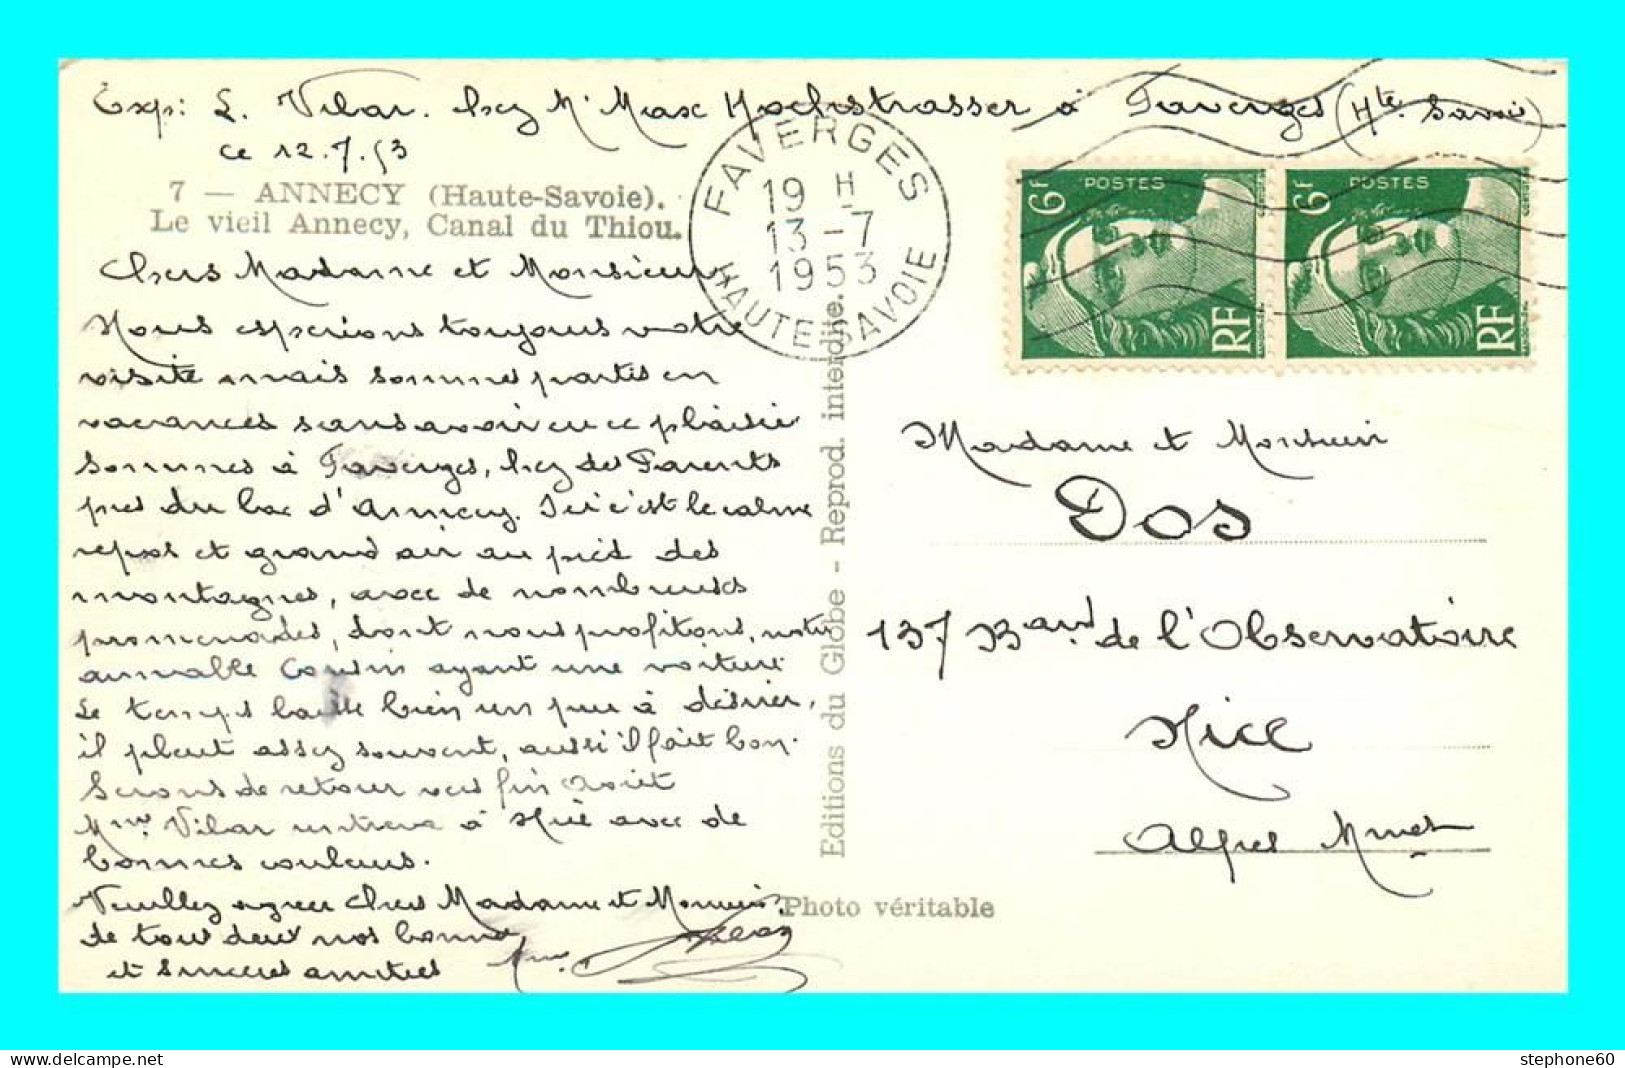 Exp: L. Vilar. chez Mr Max Hochstrasser à Faverges (Hte Savoie)
ce 12.7.53
7 — ANNECY (Haute-Savoie).
Le vieil Annecy, Canal du Thiou.
FAVERGES
19 H
13-7
1953
HAUTE-SAVOIE
6F POSTES RF
6F POSTES RF
Chers Madame et Monsieur
Nous esperions toujours votre
visite mais sommes partis en
vacances sans avoir eu ce plaisir
sommes à Faverges, chez des Parents
pres du lac d'Annecy. Ici c'est le calme
repos et grand air au pied des
montagnes, avec de nombreuses
promenades, dont nous profitons, notre
aimable Cousin ayant une voiture
Le temps laisse bien un peu à désirer,
il pleut assez souvent, aussi il fait bon.
Serons de retour vers fin Août
Mme Vilar rentrera à Nice avec de
bonnes couleurs.
Veuillez agreer Chers Madame et Monsieur
de tous deux nos bonnes
et sinceres amitiés
Mme. Vilar
Editions du Globe - Reprod. interdite.
Photo véritable
Madame et Monsieur
DOS
137 Bard de l'Observatoire
Nice
Alpes Mmes
stephone60